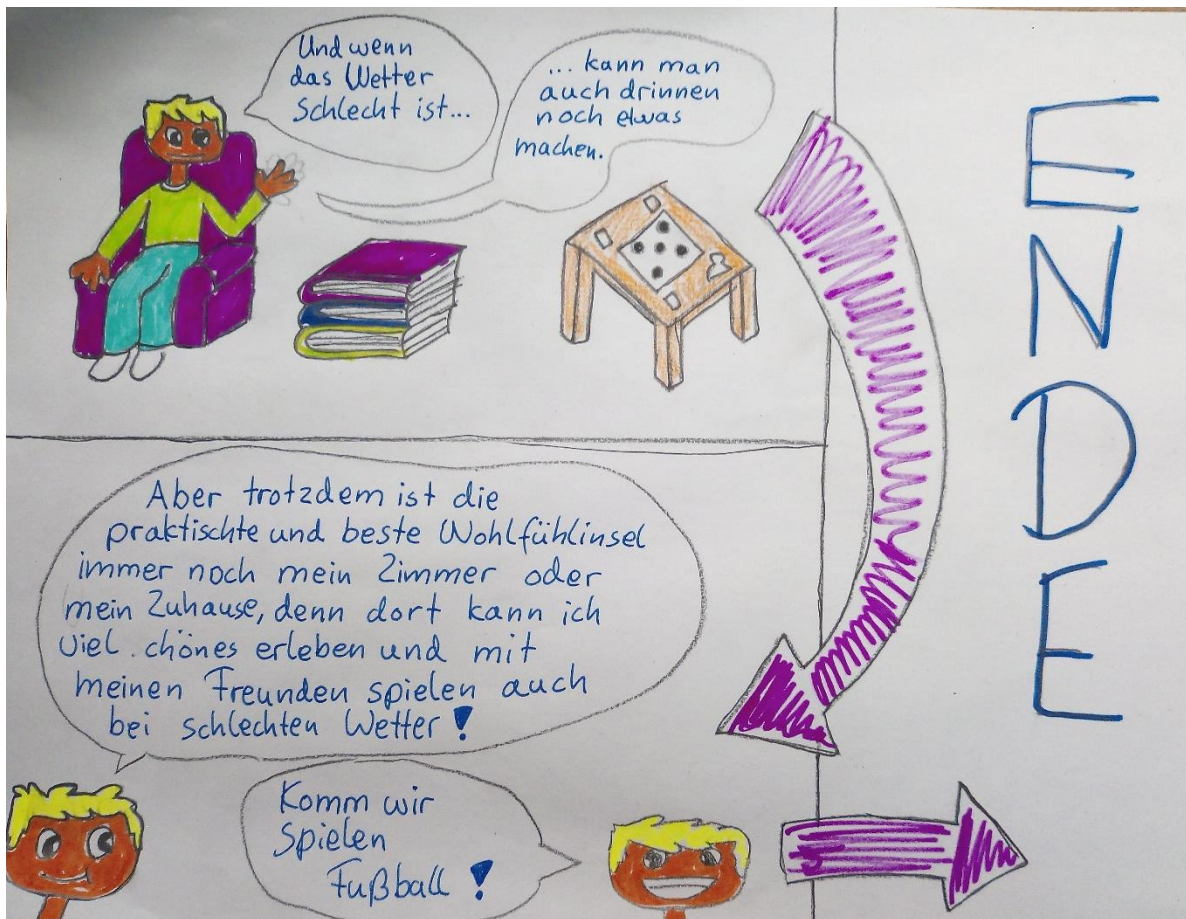 Und wenn
das Wetter
Schlecht ist...
... kann man
auch drinnen
noch etwas
machen.
Aber trotzdem ist die
praktischte und beste Wohlfühlinsel
immer noch mein Zimmer oder
mein Zuhause, denn dort kann ich
viel .chönes erleben und mit
meinen Freunden spielen auch
bei schlechten Wetter!
Komm wir
Spielen
Fußball!
ENDE